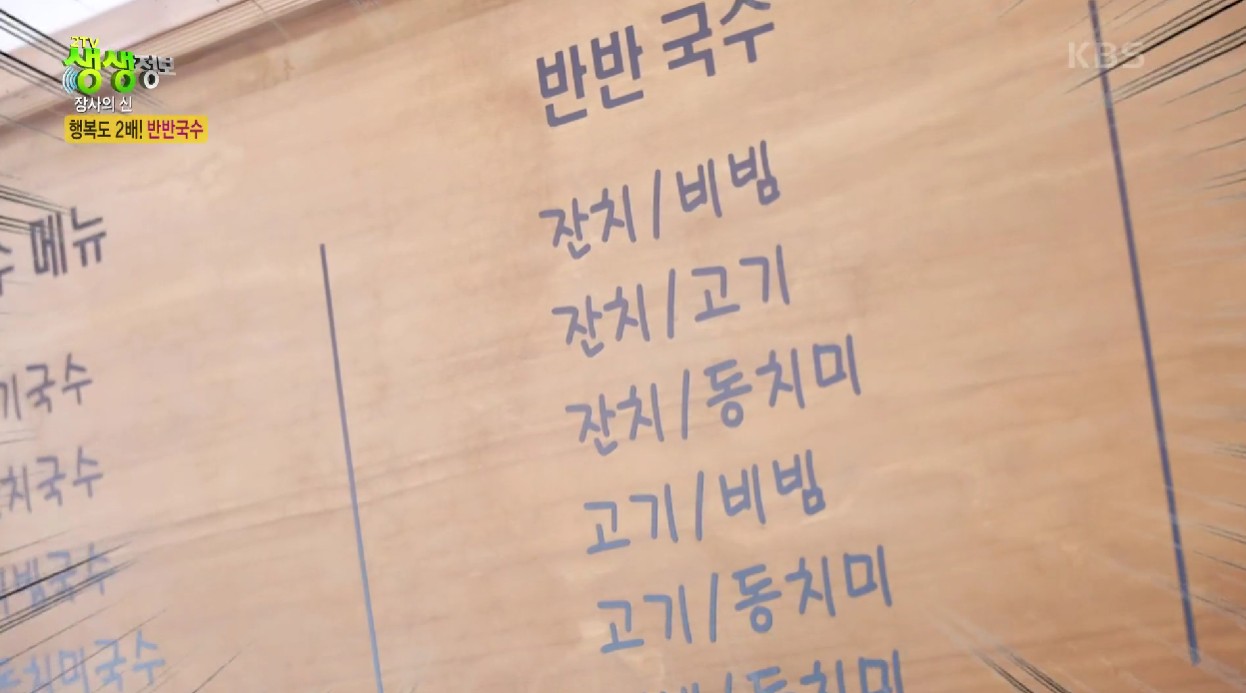 2TV
생생정보
장사의 신
행복도 2배! 반반국수
KBS
메뉴
기국수
치국수
비빔국수
동치미국수
반반 국수
잔치/비빔
잔치/고기
잔치/동치미
고기/비빔
고기/동치미
/동치미